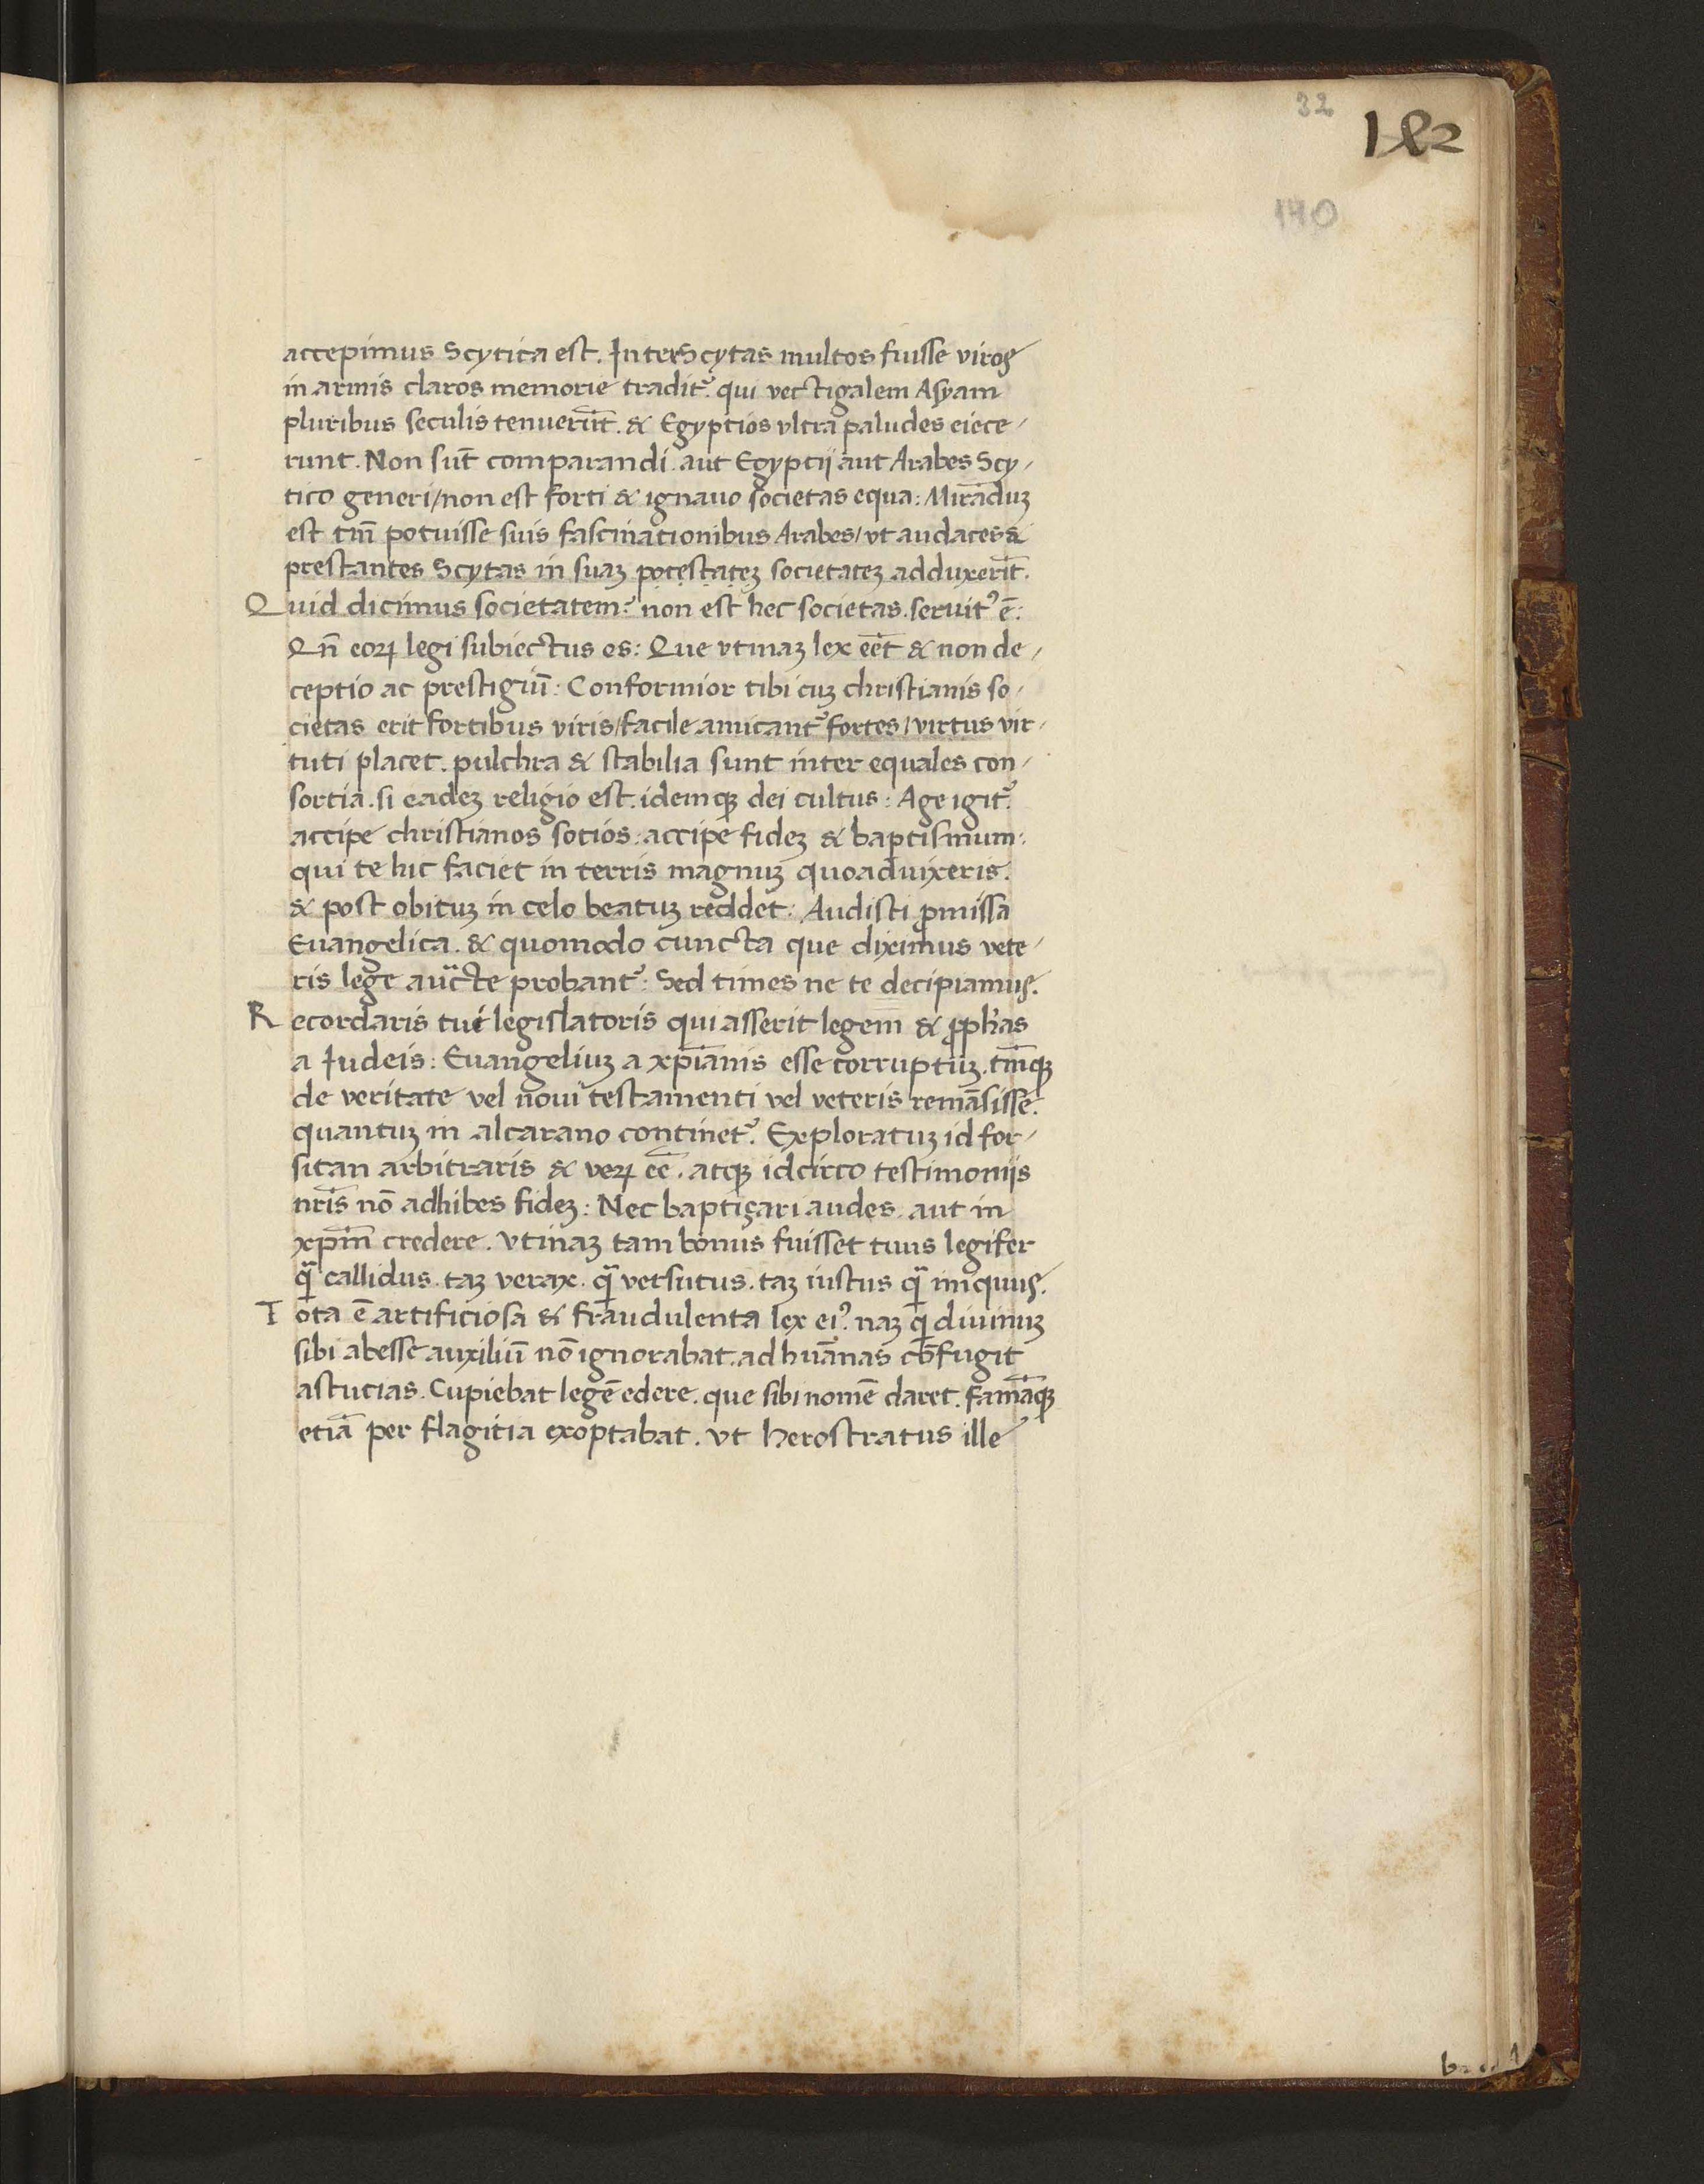 32
182
140
accepimus Scytica est. Inter Scytas multos fuisse viros
in armis claros memorie tradit᷒. qui vectigalem Asyam
pluribus seculis tenuerūt. & Egyptios vltra paludes eiece/
runt. Non sūt comparandi. aut Egyptij aut Arabes Scy/
tico generi/non est forti & ignauo societas equa: Mirāduꝫ
est tm̄ potuisse suis fascinationibus Arabes/vt audaces &
prestantes Scytas in suaꝫ potestateꝫ societateꝫ adduxerīt.
Quid dicimus societatem? non est hec societas. seruit᷒ ē:
Qn̄ eoꝝ legi subiectus es: Que vtinaꝫ lex eēt & non de/
ceptio ac prestigiū: Conformior tibi cuꝫ christianis so/
cietas erit fortibus viris/facile amicant᷒ fortes/virtus vir/
tuti placet. pulchra & stabilia sunt inter equales con/
sortia. si eadeꝫ religio est. idemqꝫ dei cultus: Age igit᷒.
accipe christianos socios: accipe fideꝫ & baptismum:
qui te hic faciet in terris magnuꝫ quoaduixeris.
& post obituꝫ in celo beatuꝫ reddet: Audisti ꝓmissa
Euangelica. & quomodo cuncta que diximus vete/
ris lege aucte probant᷒: Sed times ne te decipiamus.
Recordaris tui legislatoris qui asserit legem & ꝓph̄as
a Iudeis: Euangeliuꝫ a xp̄ianis esse corruptuꝫ. tm̄qꝫ
de veritate vel noui testamenti vel veteris remāsisse.
quantuꝫ in alcarano continet᷒. Exploratuꝫ id for/
sitan arbitraris & veꝝ eē. atqꝫ idcirco testimoniis
nr̄is nō adhibes fideꝫ: Nec baptiçari audes. aut in
xp̄m credere. vtinaꝫ tam bonus fuisset tuus legifer
q̄ callidus. taꝫ verax. q̄ versutus. taꝫ iustus q̄ iniquus.
Tota ē artificiosa & fraudulenta lex ei᷒. naꝫ qi diuinuꝫ
sibi abesse auxiliū nō ignorabat. ad huānas cōfugit
astucias. Cupiebat legē edere. que sibi nomē daret. famāqꝫ
etiā per flagitia exoptabat. vt herostratus ille